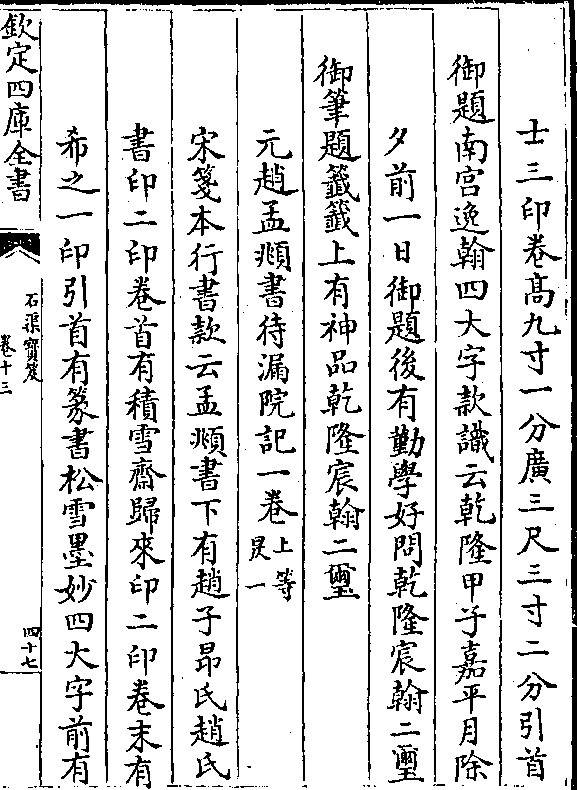 士三印卷高九寸一分廣三尺三寸二分引首
御題南宮逸翰四大字款識云乾隆甲子嘉平月除
夕前一日御題後有勤學好問乾隆宸翰二璽
御筆題籤籤上有神品乾隆宸翰二璽
元趙孟頫書待漏院記一卷上等昃一
宋箋本行書款云孟頫書下有趙子昂氏趙氏
書印二印卷首有積雪齋歸來印二印卷末有
希之一印引首有篆書松雪墨妙四大字前有
欽定四庫全書
石渠寶笈
卷十三
四十七